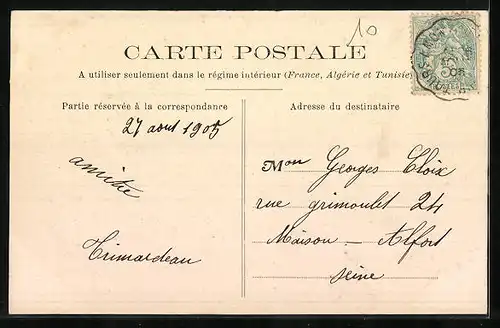 10
CARTE POSTALE
A utiliser seulement dans le régime intérieur (France, Algérie et Tunisie)
Partie réservée à la correspondance
27 aout 1905
amitié
Trimardeau
Adresse du destinataire
Mon Georges Cloix
rue grimoulet 24
Maison - Alfort
Seine